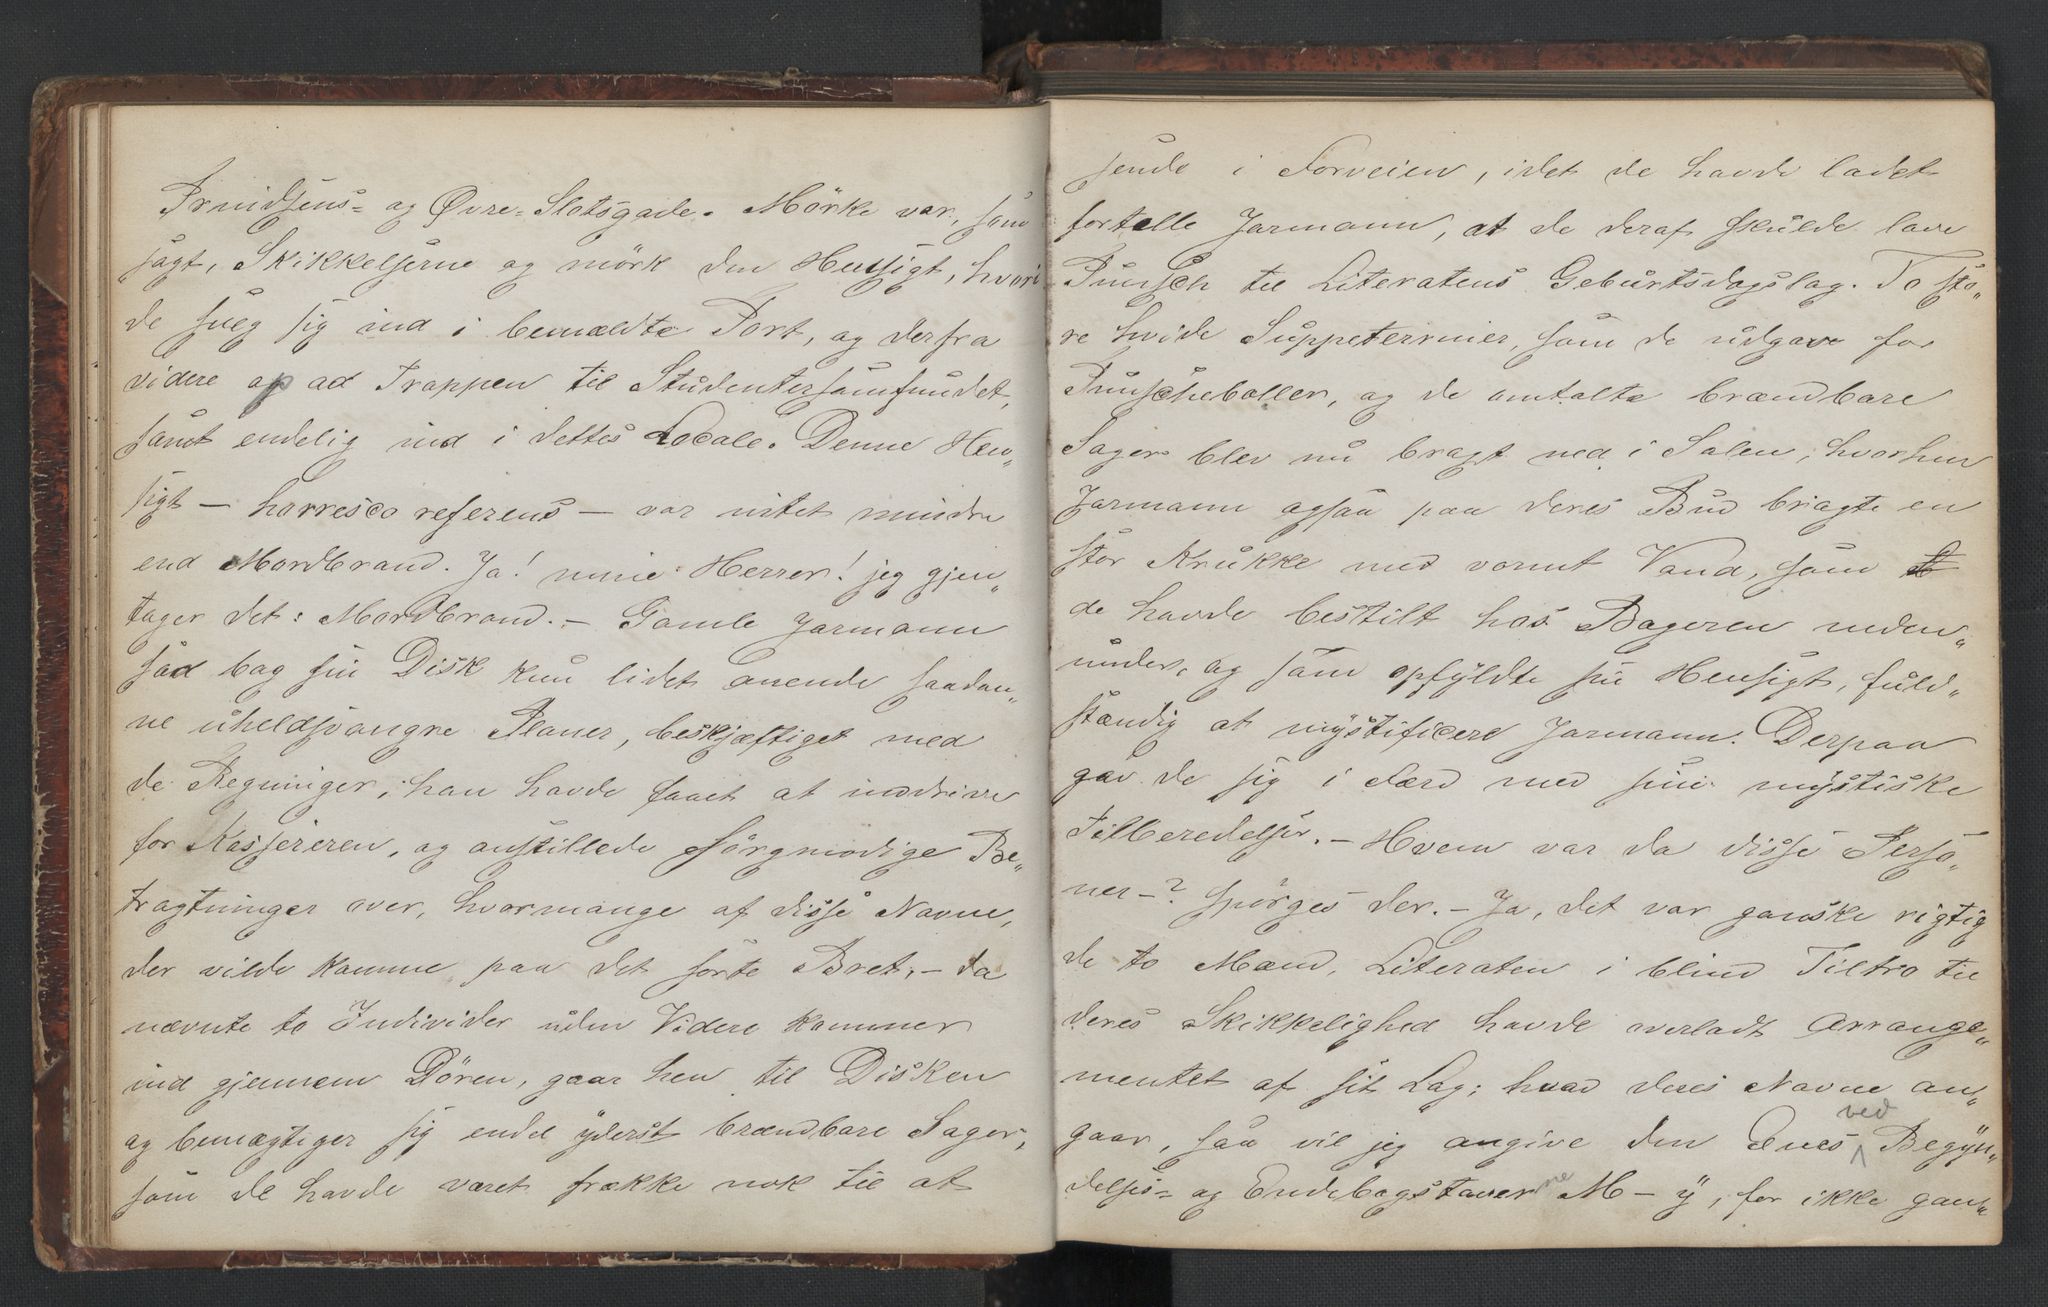 Prindsens- og Øvre-Slotsgade. Mörke var, som
sagt, Skikkelserne og mörk den Hensigt, hvori
de sneg sig ind i bemældte Port, og derfra
videre op ad Trappen til Studentersamfundet,
samt endelig ind i dettes Locale. Denne Hen„
sigt — horresco referens — var intet mindre
end Mordbrand. Ja! mine Herrer! jeg gjen„
tager det: Mordbrand. — Gamle Jarmann
sad bag sin Disk kun lidet anende saadan„
ne uheldsvangre Planer, beskjæftiget med
de Regninger, han havde faaet at inddrive
for Kassereren, og anstillede sörgmodige Be„
tragtninger over, hvormange af disse Navne,
der vilde komme paa det sorte Bret, — da
nævnte to Individer uden Videre kommer
ind gjennem Dören, gaar hen til Disken
og bemægtiger sig endel yderst brændbare Sager,
som de havde været frække nok til at
sende i Forveien, idet de havde ladet
fortælle Jarmann, at de deraf skulde lave
Punsch til Literatens Geburtsdagslag. To sto„
re hvide Suppeterriner, som de udgave for
Punscheboller, og de omtalte brændbare
Sager blev nu bragt ned i Salen, hvorhen
Jarmann ogsaa paa deres Bud bragte en
stor Krukke med varmt Vand, som
de havde bestilt hos Bageren neden„
under, og som opfyldte sin Hensigt, fuld„
stændig at mystificere Jarmann. Derpaa
gav de sig i Færd med sine mystiske
Tilberedelser. — Hvem var da disse Perso„
ner —? spörges der. — Ja, det var ganske rigtig
de to Mænd, Literaten i blind Tiltro til
deres Skikkelighed havde overladt Arrange„
mentet af sit Lag; hvad deres Navne an„
gaar, saa vil jeg angive den Enes ved Begyn„
delses- og Endebogstaverne M — y, for ikke gan„